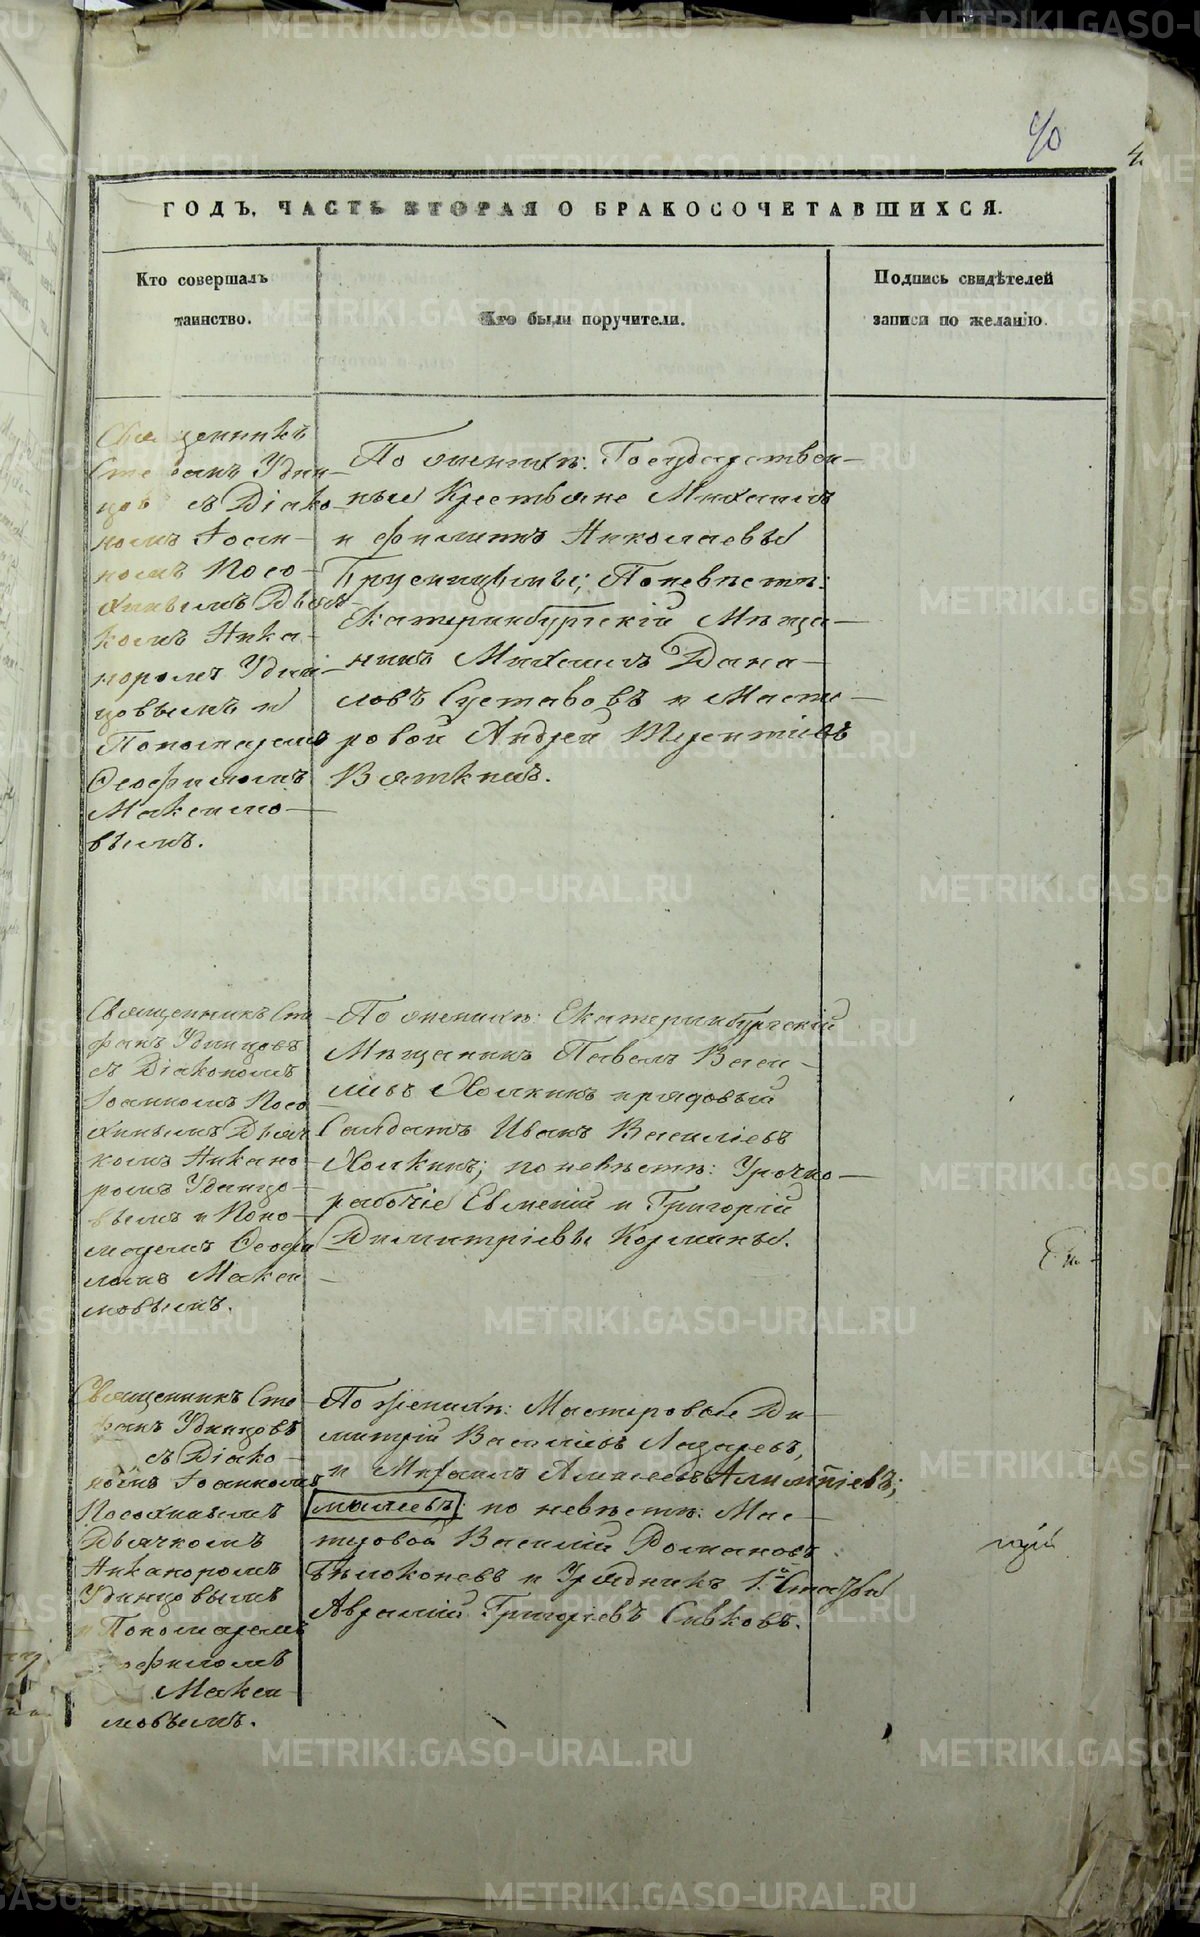 40
ГОДЪ, ЧАСТЬ ВТОРАЯ О БРАКОСОЧЕТАВШИХСЯ.
Кто совершалъ
таинство.
Кто были поручители.
Подпись свидѣтелей
записи по желанію.
Священникъ
Стефанъ Удин-
цовъ съ Діако-
номъ Іоан-
номъ Посо-
хинымъ Дьяч-
комъ Ника-
норомъ Удин-
цовымъ и
Пономаремъ
Ѳеофиломъ
Максимо-
вымъ.
По женихѣ: Государствен-
ные Крестьяне Михаилъ
и Филиппъ Николаевы
Брусницыны; По невѣстѣ:
Екатеринбургскій Мѣща-
нинъ Михаилъ Дани-
ловъ Суставовъ и Масте-
ровой Андрей Терентіевъ
Вяткинъ.
Священникъ Сте-
фанъ Удинцовъ
съ Діакономъ
Іоанномъ Посо-
хинымъ Дьяч-
комъ Никано-
ромъ Удинцо-
вымъ и Поно-
маремъ Ѳеофи-
ломъ Макси-
мовымъ.
По женихѣ: Екатеринбургскій
Мѣщанинъ Павелъ Васи-
ліевъ Холкинъ и рядовый
Солдатъ Иванъ Василіевъ
Холкинъ; по невѣстѣ: Урочно-
рабочіе Евмений и Григорій
Димитріевы Кормины.
Священникъ Сте-
фанъ Удинцовъ
съ Діако-
номъ Іоанномъ
Посохинымъ
Дьячкомъ
Никаноромъ
Удинцовымъ
и Пономаремъ
Ѳеофиломъ
Макси-
мовымъ.
По женихѣ: Мастеровые Ди-
митрій Василіевъ Лазаревъ,
и Михаилъ Алексеевъ
по невѣстѣ: Мас-
теровой Василій Романовъ
Бѣлоконевъ и Урядникъ 1й Статьи
Авраамій Григоріевъ Сивковъ.
METRIKI.GASO-URAL.RU